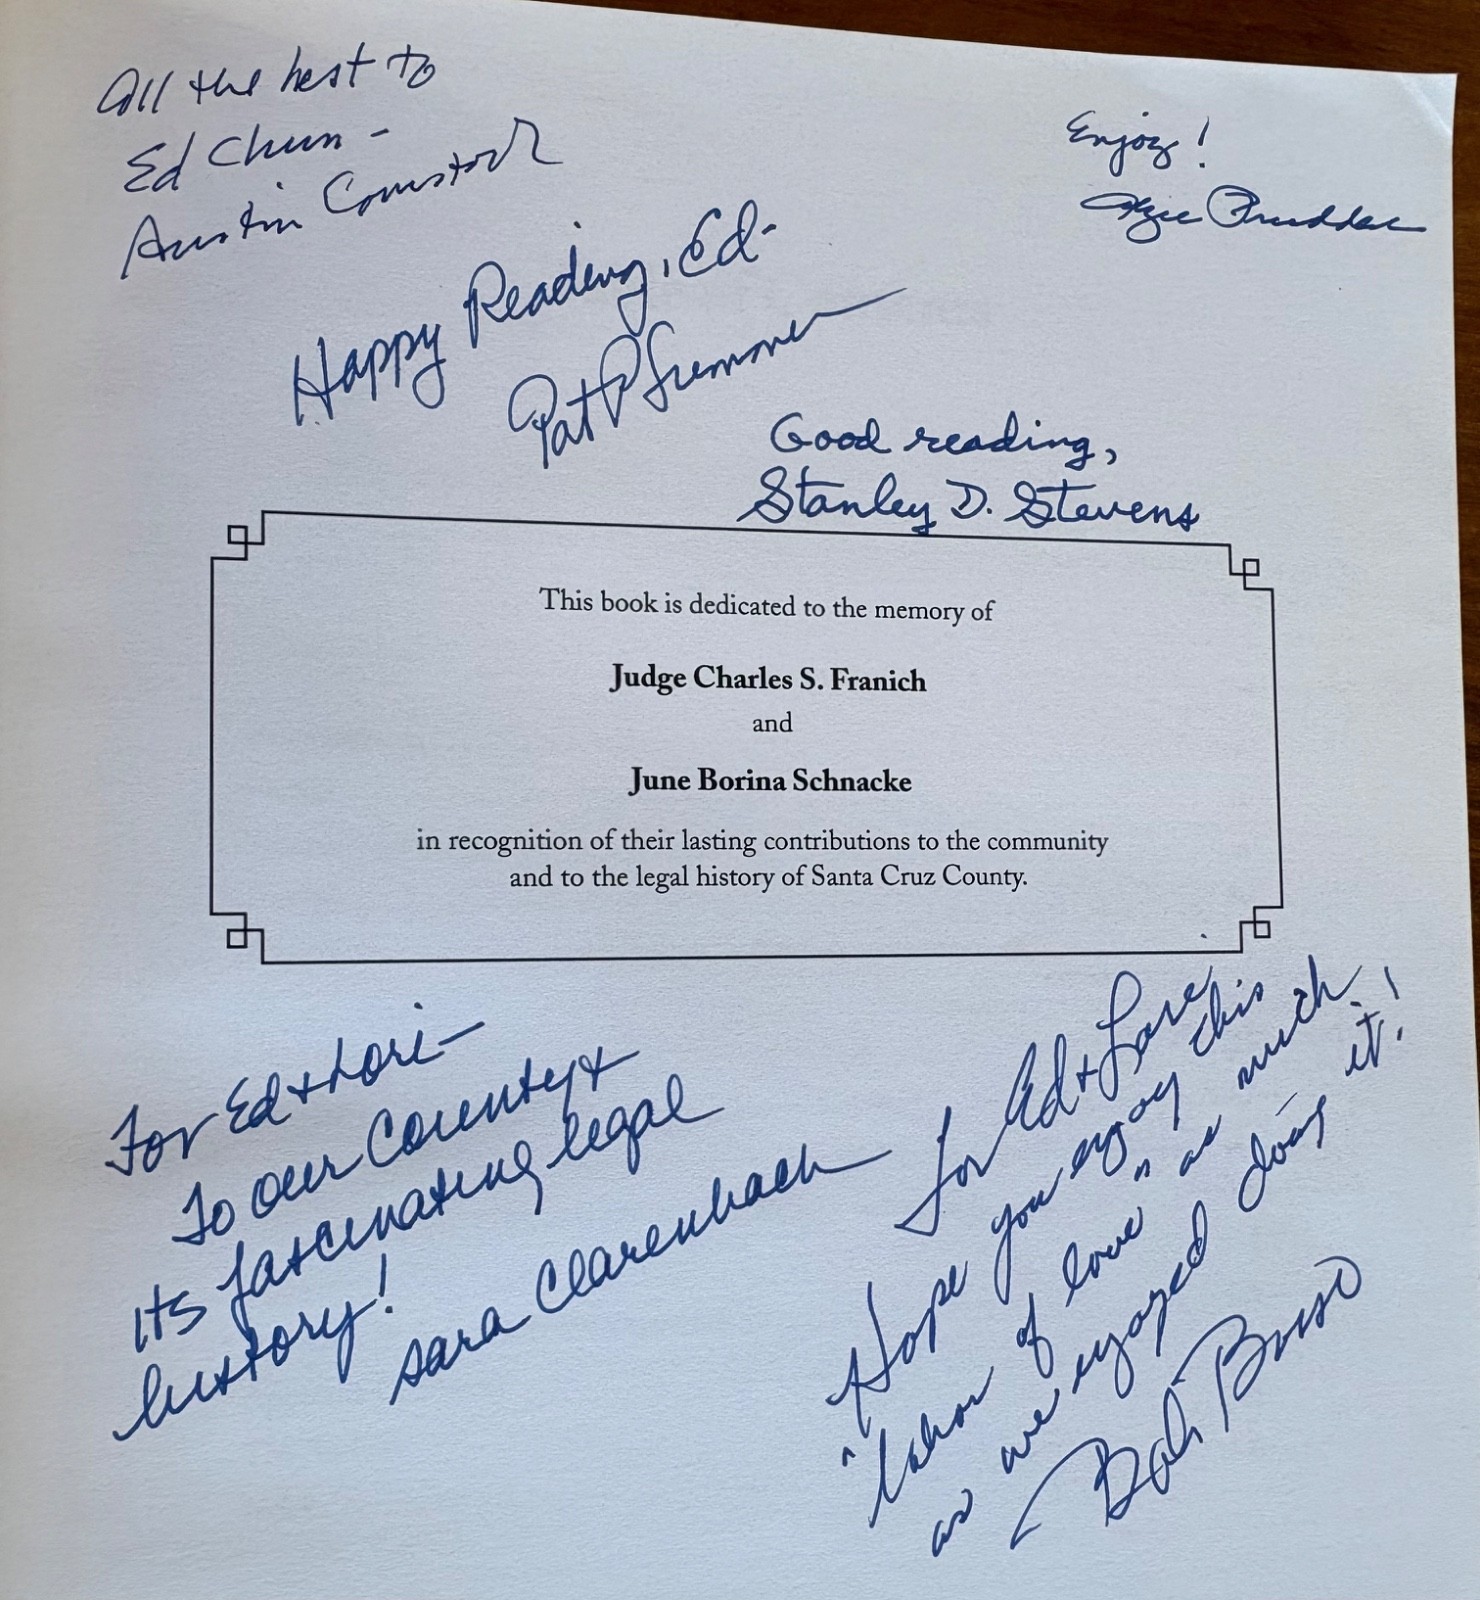 All the best to
Ed Chun -
Austin Comstock
Enjoy!
Happy Reading, Ed-
Pat Pfremmer
Good reading,
Stanley D. Stevens
This book is dedicated to the memory of
Judge Charles S. Franich
and
June Borina Schnacke
in recognition of their lasting contributions to the community
and to the legal history of Santa Cruz County.
For Ed + Lori-
To our County +
its fascinating legal
history!
Sara Clarenbach
For Ed +
Hope you enjoy this
"labor of love" as much
as we enjoyed doing it!
Bob Bosso